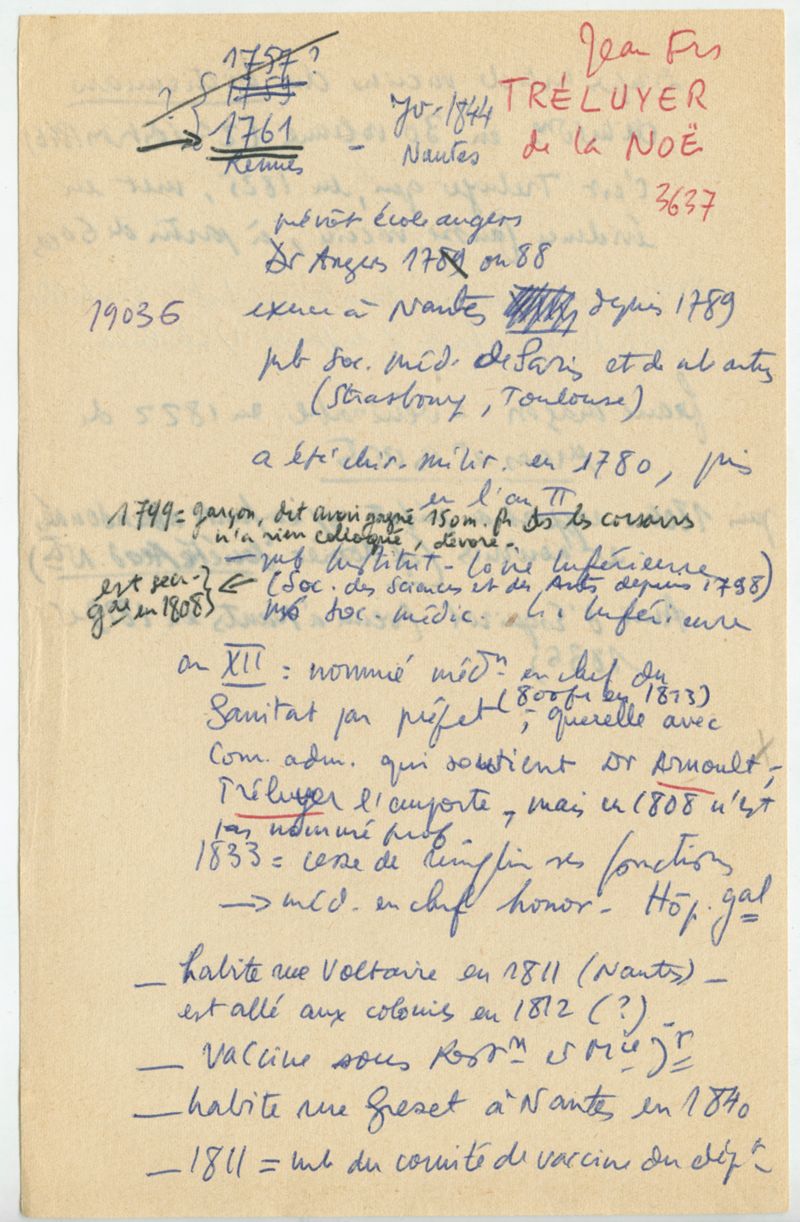 Jean Frs
TRÉLUYER
de la NOË
3637
1757 ?
1759
?
1761
Rennes
- Jr-1844
Nantes
prévôt école angers
Dr Angers 1789 ou 88
19036 exerce à Nantes depuis 1789
mb Soc. méd. de Paris et de nb autres
(Strasbourg, Toulouse)
a été chir. milit. en 1780, puis
en l'an II
1799 = garçon, dit avoir gagné 150m fr ds les corsaires
n'a rien colloqué, dévoré -
- mb Institut - Loire Inférieure
(Soc. des Sciences et des Arts depuis 1798)
est secr.
gal en 1808
mb Soc. médic. L. Inférieure
an XII = nommé médn en chef du
Sanitat par préfet (800fr en 1813) ; querelle avec
Com. adm. qui soutient Dr Arnoult ;
Tréluyer l'emporte, mais en 1808 n'est
pas nommé prof
1833 = cesse de remplir ses fonctions
→ méd. en chef honor - Hôp. gal
- habite rue Voltaire en 1811 (Nantes) -
est allé aux colonies en 1812 (?)
- Vaccine sous Restn et Mie Jt
- habite rue Gresset à Nantes en 1840
- 1811 = mb du comité de vaccine du dépt -